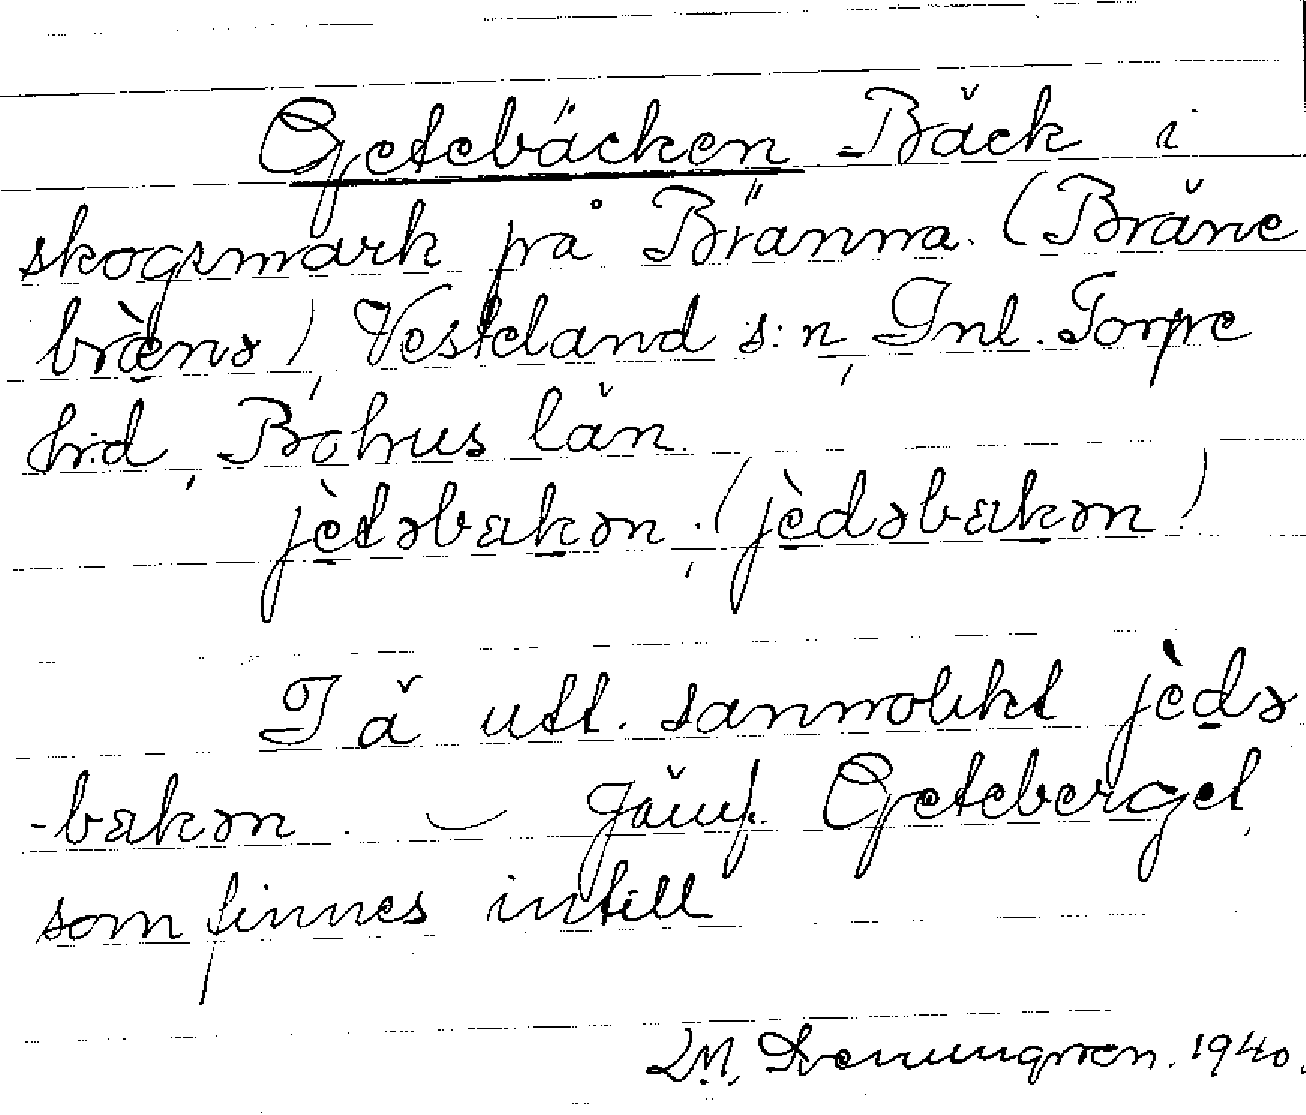 Getebäcken - Bäck i
skogsmark på Bränna. (Bräne
bræ̀nə), Västeland s:n, Inl. Torpe
hd, Bohus län.
jèdəbɛkən, (jèdəbɛkən)
I ä utt. sannolikt jèdə
-bɛkən. – Jämf. Getebergel,
som finnes intill
1940.